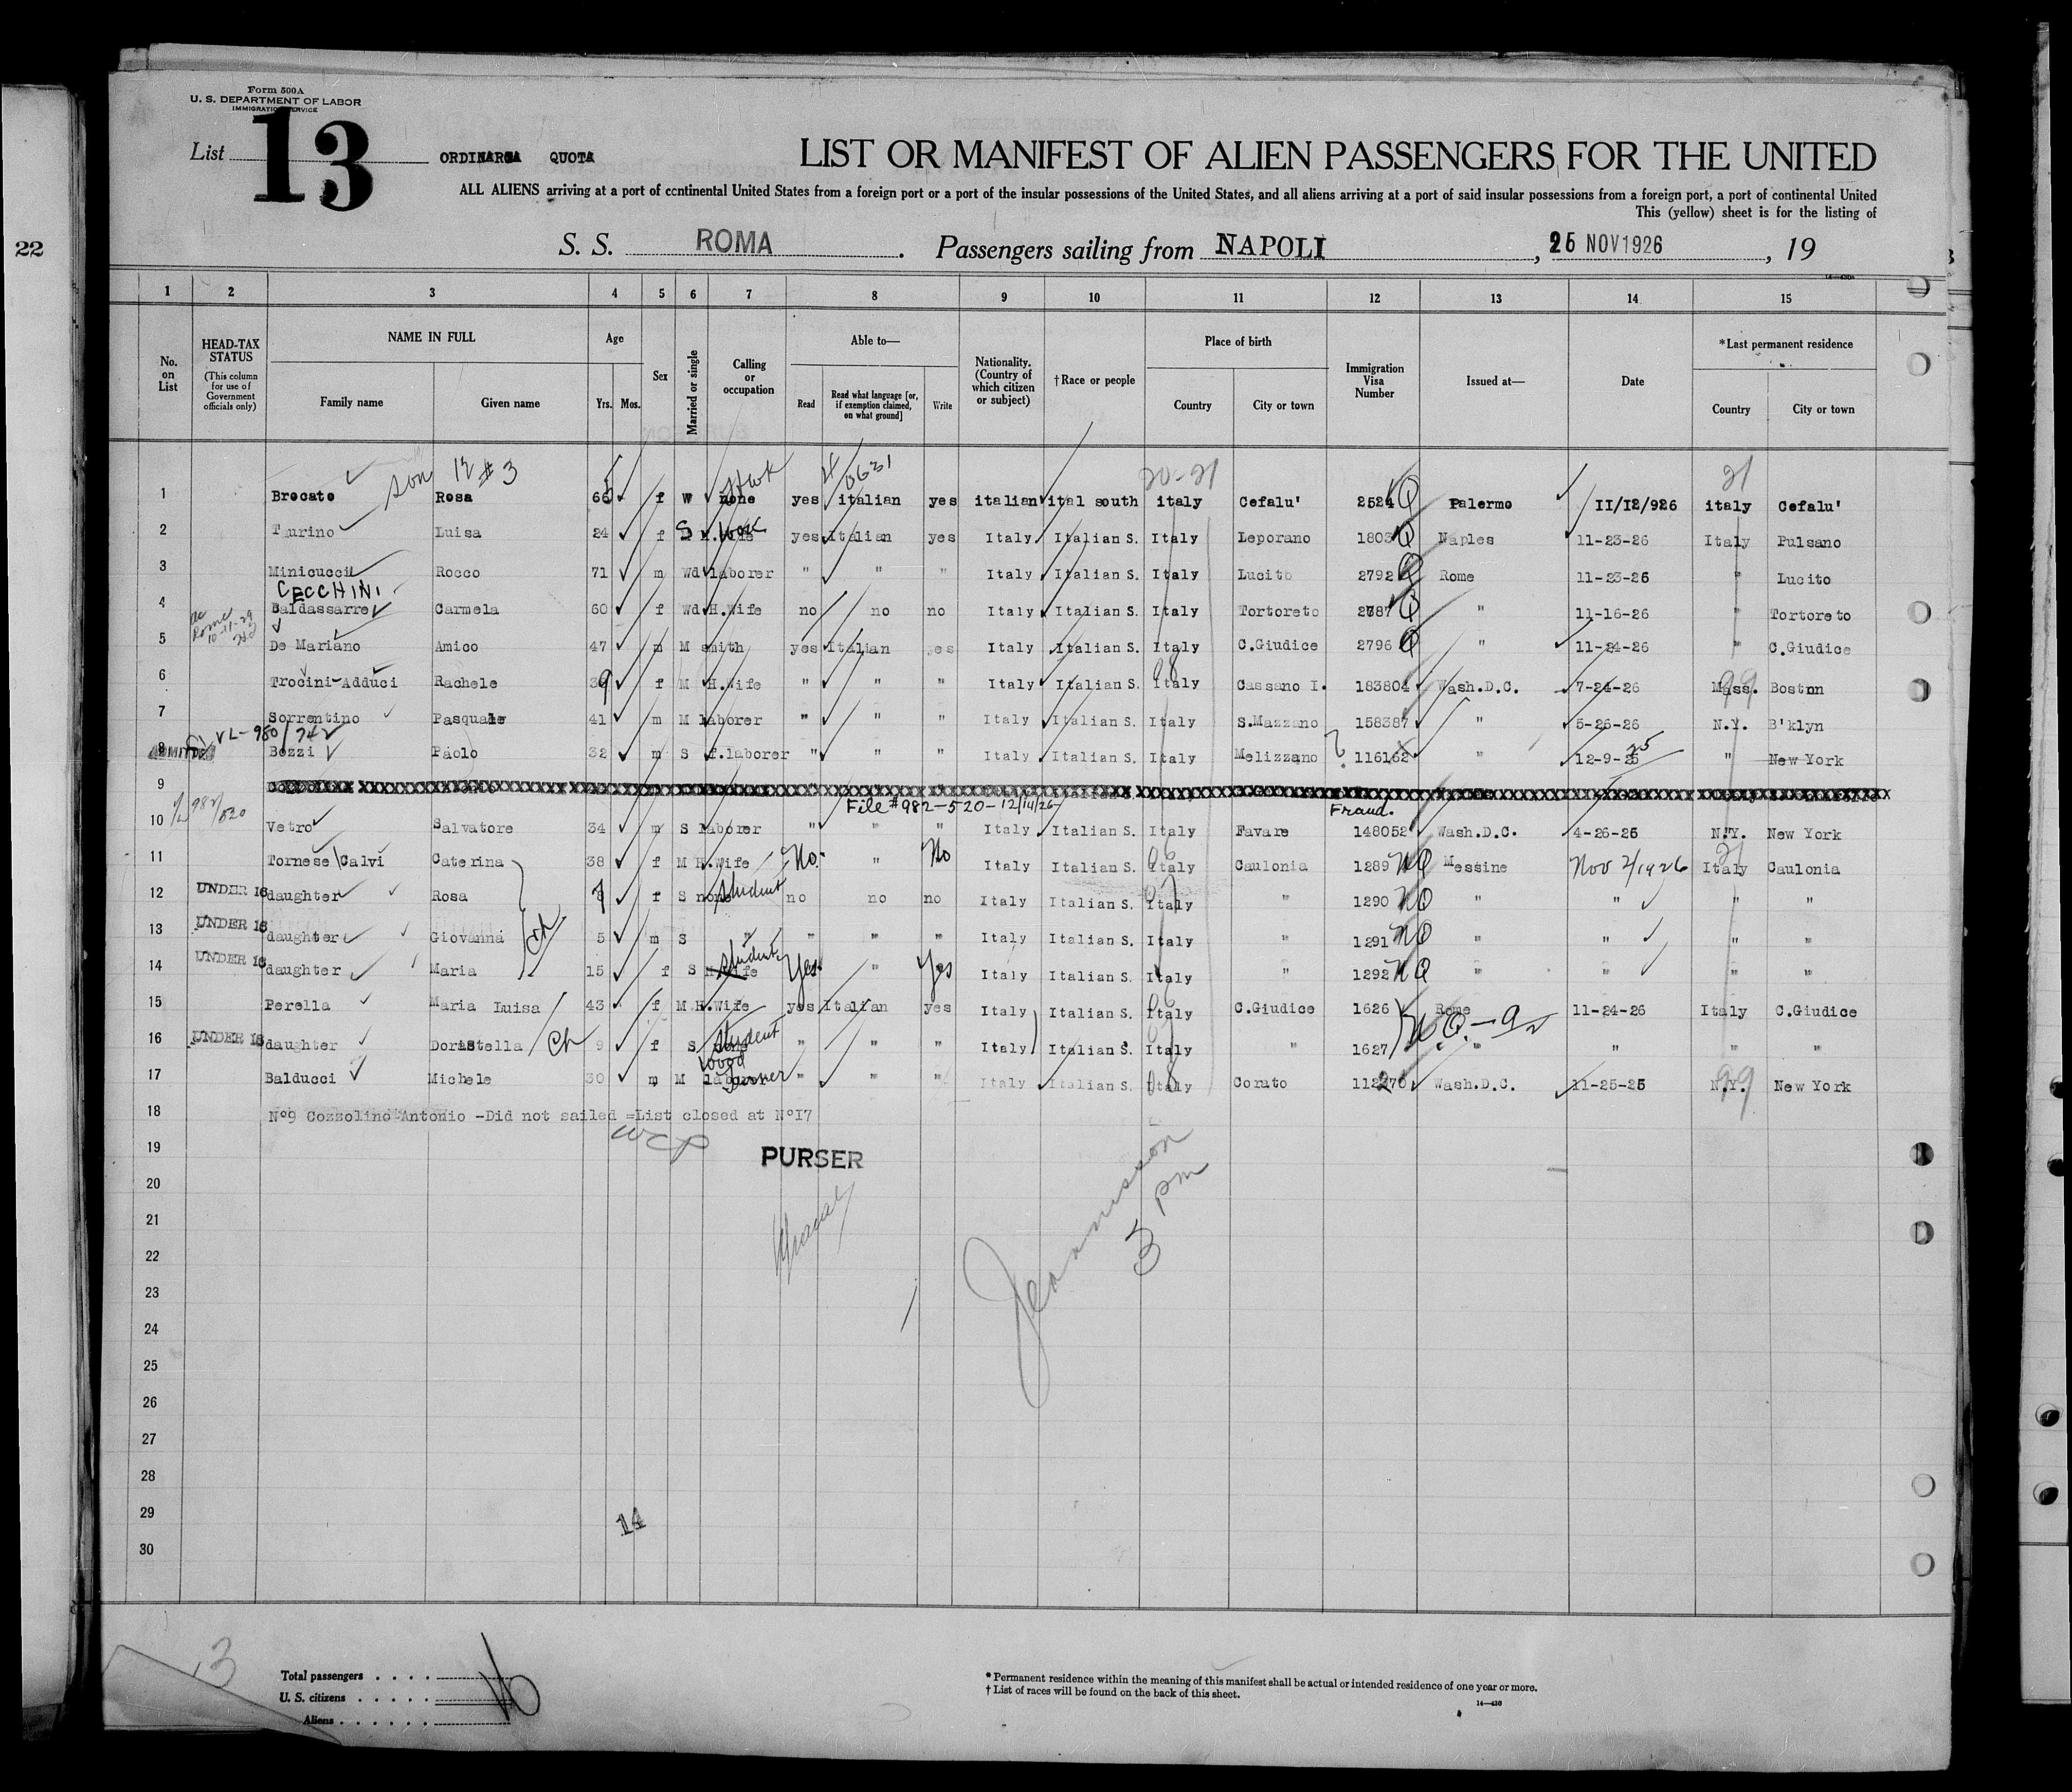 Form 500A
U. S. DEPARTMENT OF LABOR
IMMIGRATION SERVICE
List 13 QUOTA
LIST OR MANIFEST OF ALIEN PASSENGERS FOR THE UNITED
ALL ALIENS arriving at a port of continental United States from a foreign port or a port of the insular possessions of the United States, and all aliens arriving at a port of said insular possessions from a foreign port, a port of continental United
This (yellow) sheet is for the listing of
22
S. S. ROMA. Passengers sailing from NAPOLI, 25 NOV 1926, 19
1 2 3 4 5 6 7 8 9 10 11 12 13 14 15
No. on List
HEAD-TAX STATUS (This column for use of Government officials only)
NAME IN FULL Family name Given name
Age Yrs. Mos.
Sex
Married or single
Calling or occupation
Able to— Read Read what language [or, if exemption claimed, on what ground] Write
Nationality. (Country of which citizen or subject)
†Race or people
Place of birth Country City or town
Immigration Visa Number
Issued at—
Date
*Last permanent residence Country City or town
son 12 #3 20-21 21
1 Brocato Rosa 66 f W none yes italian yes italian ital south italy Cefalu' 2524 Q Palermo 11/12/926 italy Cefalu'
2 Taurino Luisa 24 f S H.Wife yes Italian yes Italy Italian S. Italy Leporano 1803 Q Naples 11-23-26 Italy Pulsano
3 Minicucci Rocco 71 m Wd laborer " " " Italy Italian S. Italy Lucito 2792 Q Rome 11-23-26 " Lucito
CECCHINI
4 Baldassarre Carmela 60 f Wd H.Wife no no no Italy Italian S. Italy Tortoreto 2787 Q " 11-16-26 " Tortoreto
5 De Mariano Amico 47 m M smith yes Italian yes Italy Italian S. Italy C.Giudice 2796 Q " 11-24-26 " C.Giudice
6 Trocini-Adduci Rachele 39 f M H.Wife " " " Italy Italian S. Italy Cassano I. 183804 Wash.D.C. 7-24-26 Mass. Boston
7 Sorrentino Pasquale 41 m M laborer " " " Italy Italian S. Italy S.Mazzano 158387 " 5-26-26 N.Y. B'klyn
8 ADMITTED Bozzi Paolo 32 m S f.laborer " " " Italy Italian S. Italy Melizzano ? 116162 " 12-9-25 " New York
9
File #982-520-12/14/26 Fraud.
10 982/520 Vetro Salvatore 34 m S laborer " " " Italy Italian S. Italy Favare 148052 Wash.D.C. 4-26-26 N.Y. New York
11 Tornese Calvi Caterina 38 f M H.Wife No. " No Italy Italian S. Italy Caulonia 1289 NQ Messine Nov 2/1926 Italy Caulonia
12 UNDER 16 daughter Rosa f S none student no no no Italy Italian S. Italy " 1290 NQ " " " "
13 UNDER 16 daughter Giovanna 5 m S " " " " Italy Italian S. Italy " 1291 NQ " " " "
14 UNDER 16 daughter Maria 15 f S H.Wife student Yes " Yes Italy Italian S. Italy " 1292 NQ " " " "
15 Perella Maria Luisa 43 f M H.Wife yes Italian yes Italy Italian S. Italy C.Giudice 1626 Rome 11-24-26 Italy C.Giudice
16 UNDER 16 daughter Doristella Ch 9 f S student " " " Italy Italian S. Italy " 1627 N.Q. " " " "
17 Balducci Michele 30 m M laborer " " " Italy Italian S. Italy Corato 112270 Wash.D.C. 11-25-25 N.Y. New York
18 Nº9 Cozzolino Antonio -Did not sailed =List closed at Nº17
19 PURSER
20
21
22
23
24
25
26
27
28
29 14
30
3 pm
13
Total passengers
U. S. citizens
Aliens
16
* Permanent residence within the meaning of this manifest shall be actual or intended residence of one year or more.
† List of races will be found on the back of this sheet.
14—430